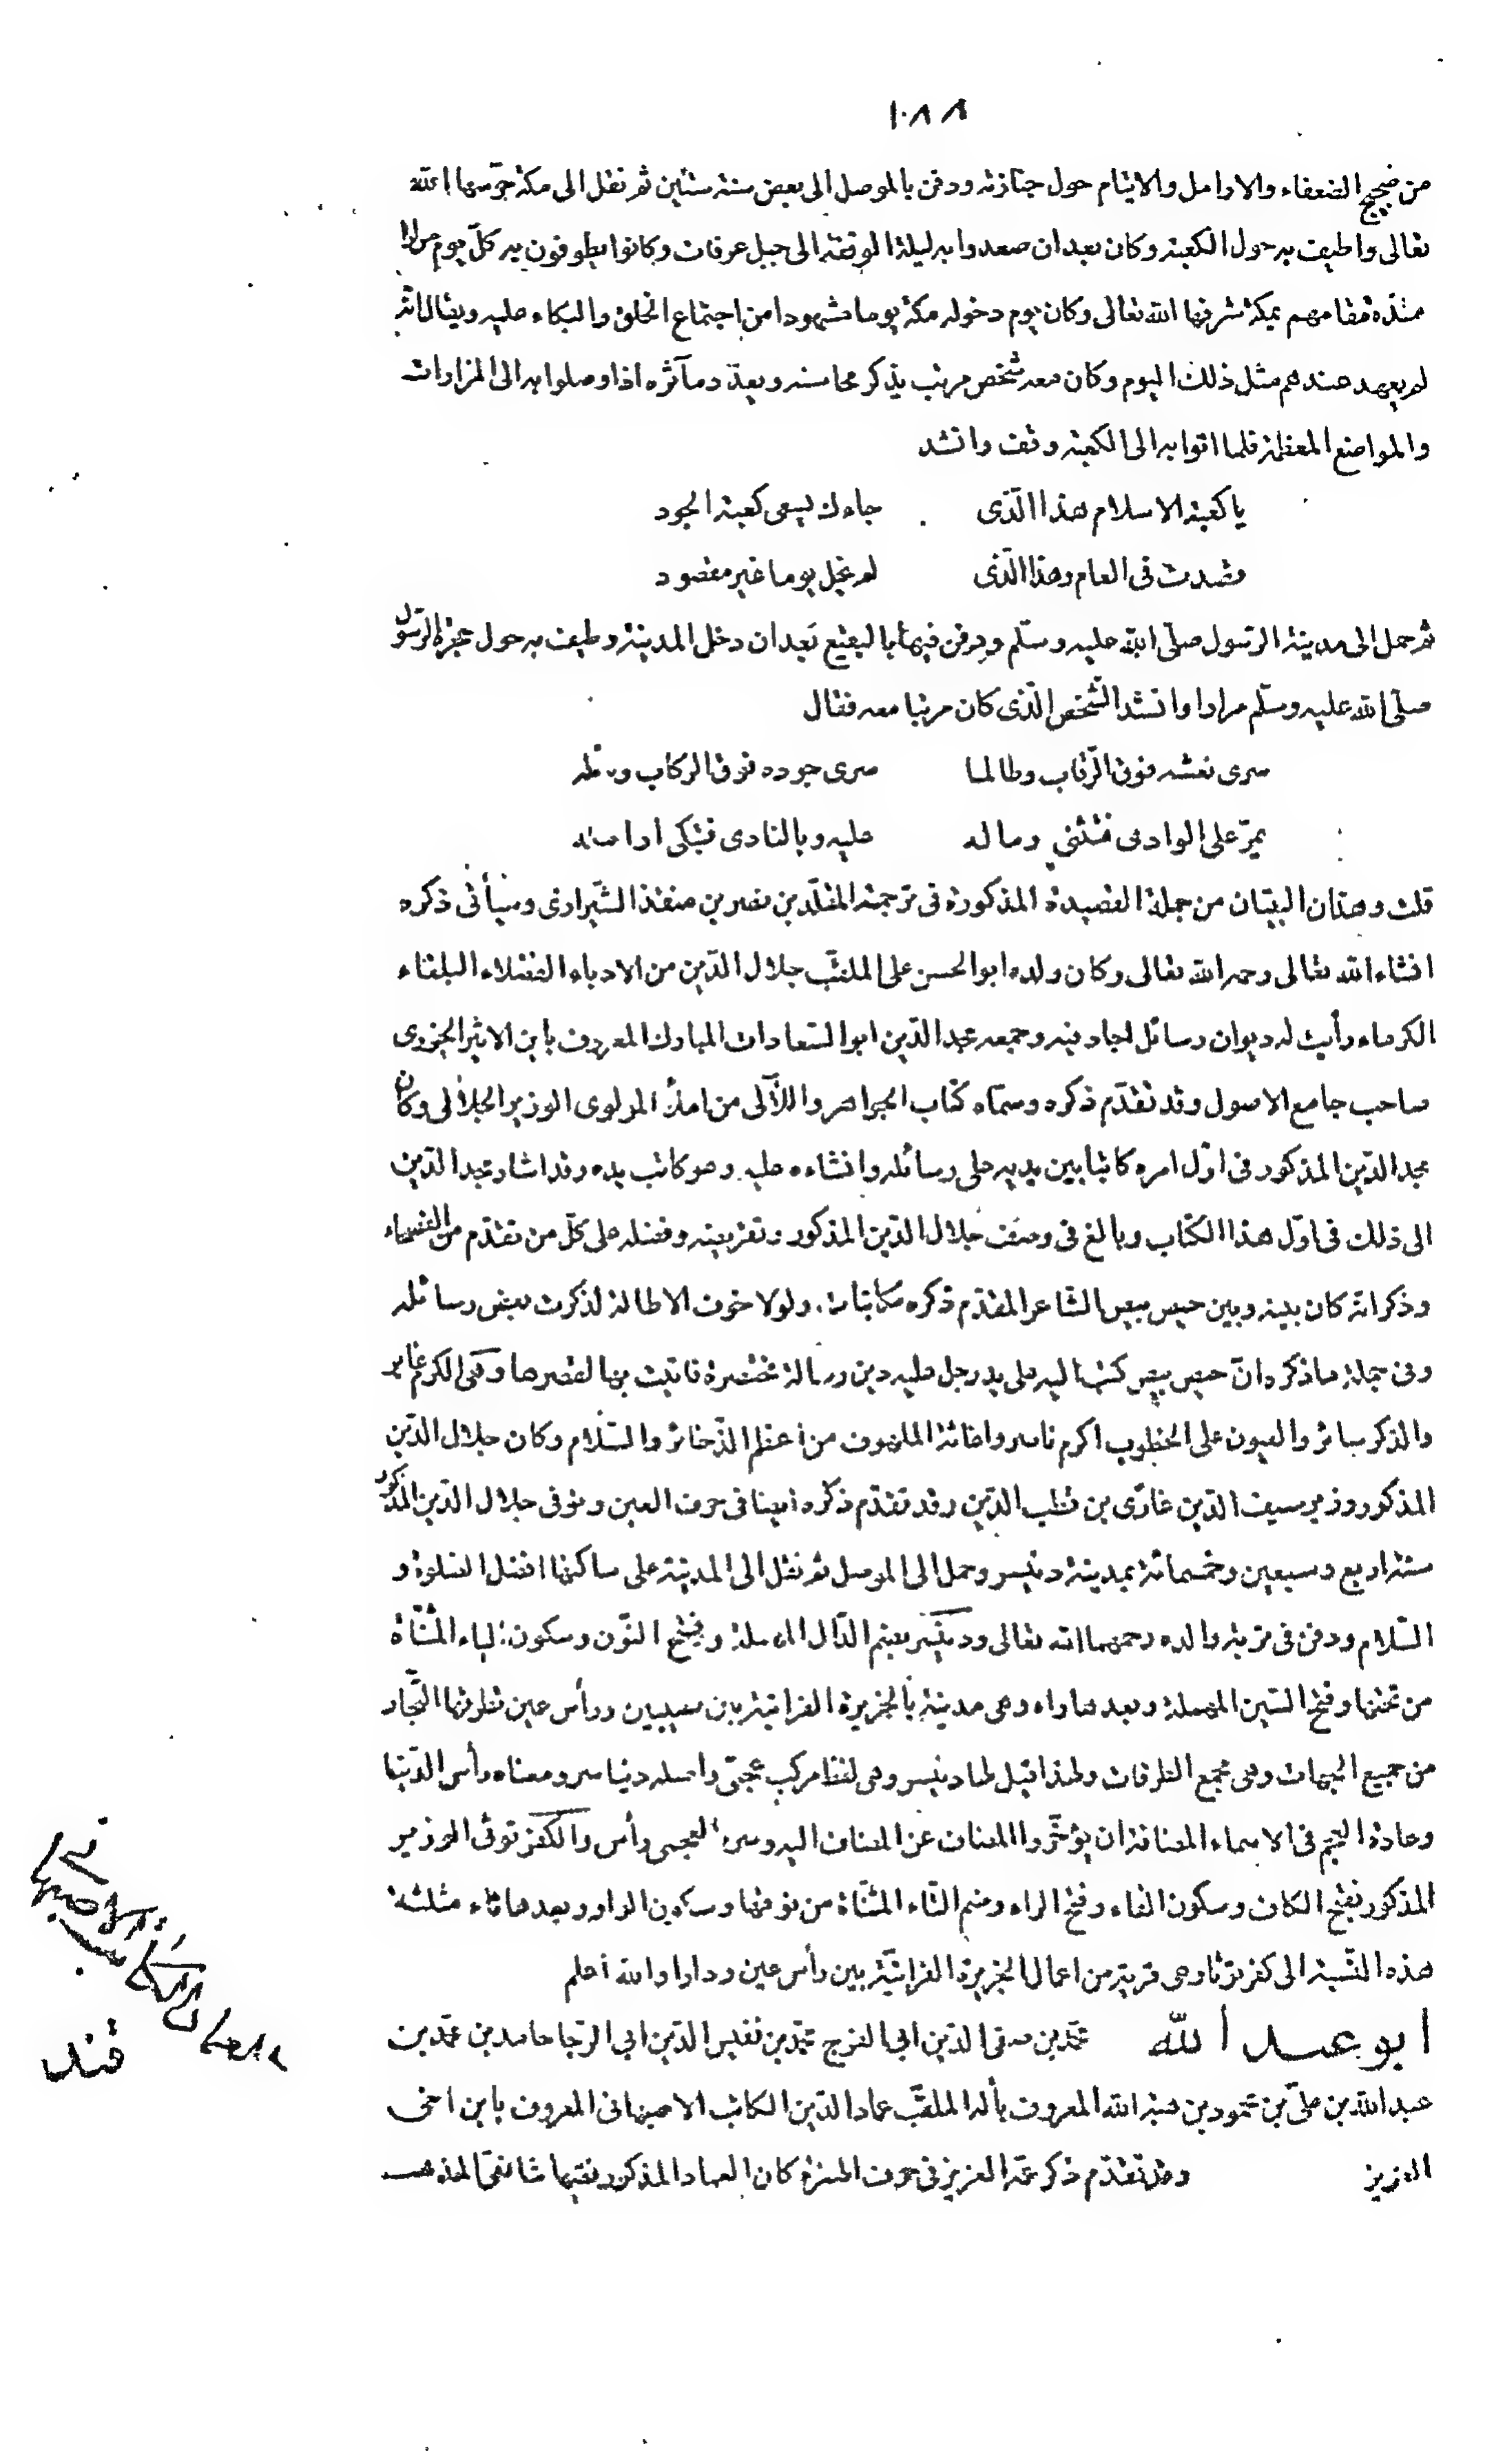 ١٠٨٨
من ضجيج الضعفاء والارامل والايتام حول جنازته ودفن بالموصل الى بعض سنة ستين ثم نقل الى مكة حرّسها الله
تعالى واطيف به حول الكعبة وكان بعد ان صعدوا به ليلة الوقفة الى جبل عرفات وكانوا يطوفون به كلّ يوم مرارا
مدّة مقامهم بمكة شرفها الله تعالى وكان يوم دخوله مكة يوما مشهودا من اجتماع الخلق والبكاء عليه ويقال انّه
لم يعهد عندهم مثل ذلك اليوم وكان معه شخص مرتب يذكر محاسنه ويعدّد مآثره اذا وصلوا به الى المزارات
والمواضع المعظمة فلما اتوا به الى الكعبة وقف وانشد
يا كعبة الاسلام هذا الّذى جاءك يسعى كعبة الجود
قصدت فى العام وهذا الّذى لم يخل يوما غير مقصود
ثم حمل الى مدينة الرّسول صلّى الله عليه وسلّم ودفن فيها بالبقيع بعد ان دخل المدينة وطيف به حول حجرة الرّسول
صلّى الله عليه وسلّم مرارا وانشد الشّخص الّذى كان مرتبا معه فقال
سرى نعشه فوق الرّقاب وطالما سرى جوده فوق الركاب ونائله
يمرّ على الوادى فتثنى رماله عليه وبالنادى فتبكى ارامله
قلت وهذان البيتان من جملة القصيدة المذكورة فى ترجمة المقلّد بن نصر بن منقذ الشّيرازى وسيأتى ذكره
انشاء الله تعالى رحمه الله تعالى وكان ولده ابو الحسن على الملقّب جلال الدّين من الادباء الفضلاء البلغاء
الكرماء رأيت له ديوان رسائل اجاد فيه وجمعه مجد الدّين ابو السّعادات المبارك المعروف بابن الاثير الجزرى
صاحب جامع الاصول وقد تقدّم ذكره وسمّاه كتاب الجواهر واللآلى من املاء المولوى الوزير الجلالى وكان
مجد الدّين المذكور فى اوّل امره كاتبا بين يديه على رسائله وانشاءه عليه وهو كاتب يده وقد اشار مجد الدّين
الى ذلك فى اوّل هذا الكتاب وبالغ فى وصف جلال الدّين المذكور وتقريضه وفضله على كلّ من تقدّم من الفصحاء
وذكر انّه كان بينه وبين حيص بيص الشّاعر المقدّم ذكره مكاتبات ولولا خوف الاطالة لذكرت بعض رسائله
وفى جملة ما ذكر ه انّ حيص بيص كتب اليه على يد رجل عليه دين رسالة مختصرة فاتيت بها لقصرها وهى الكرم غامر
والذكر سائر والعون على الخطوب اكرم ناصر واغاثة الملهوف من اعظم الذّخائر والسّلام وكان جلال الدّين
المذكور وزير سيف الدّين غازى بن قطب الدّين وقد تقدّم ذكره ايضا فى حرف الغين وتوفى جلال الدّين المذكور
سنة اربع وسبعين وخمسمائة بمدينة دنيسر وحمل الى الموصل ثم نقل الى المدينة على ساكنها افضل الصّلوة و
السّلام ودفن فى تربة والده رحمهما الله تعالى ودنيسر بضم الدّال المهملة وفتح النّون وسكون الياء المثنّاة
من تحتها وفتح السّين المهملة وبعدها راء وهى مدينة بالجزيرة الفراتية بين نصيبين ورأس عين تطرقها التّجار
من جميع الجهات وهى مجمع الطرقات ولهذا قيل لها دنيسر وهى لفظ مركب عجمىّ واصله دنيا سر ومعناه رأس الدّنيا
وعادة العجم فى الاسماء المضافة ان يؤخّروا المضاف عن المضاف اليه وسر بالعجمى رأس والكفرتوثى الوزير
المذكور بفتح الكاف وسكون الفاء وفتح الراء وضم التّاء المثنّاة من فوقها وسكون الواو وبعدها ثاء مثلثة
هذه النّسبة الى كفرتوثا وهى قرية من اعمال الجزيرة الفراتيّة بين رأس عين ودارا والله اعلم
ابو عبد الله محمّد بن صفى الدّين ابى الفرج محمّد بن نفيس الدّين ابى الرّجا حامد بن محمّد بن
عبد الله بن علىّ بن محمود بن هبة الله المعروف بأله الملقّب عماد الدّين الكاتب الاصبهانى المعروف بابن اخى
العزيز وقد تقدّم ذكر عمّه العزيز فى حرف الهمزة كان العماد المذكور فقيها شافعىّ المذهب
العماد الكاتب الاصبهانى